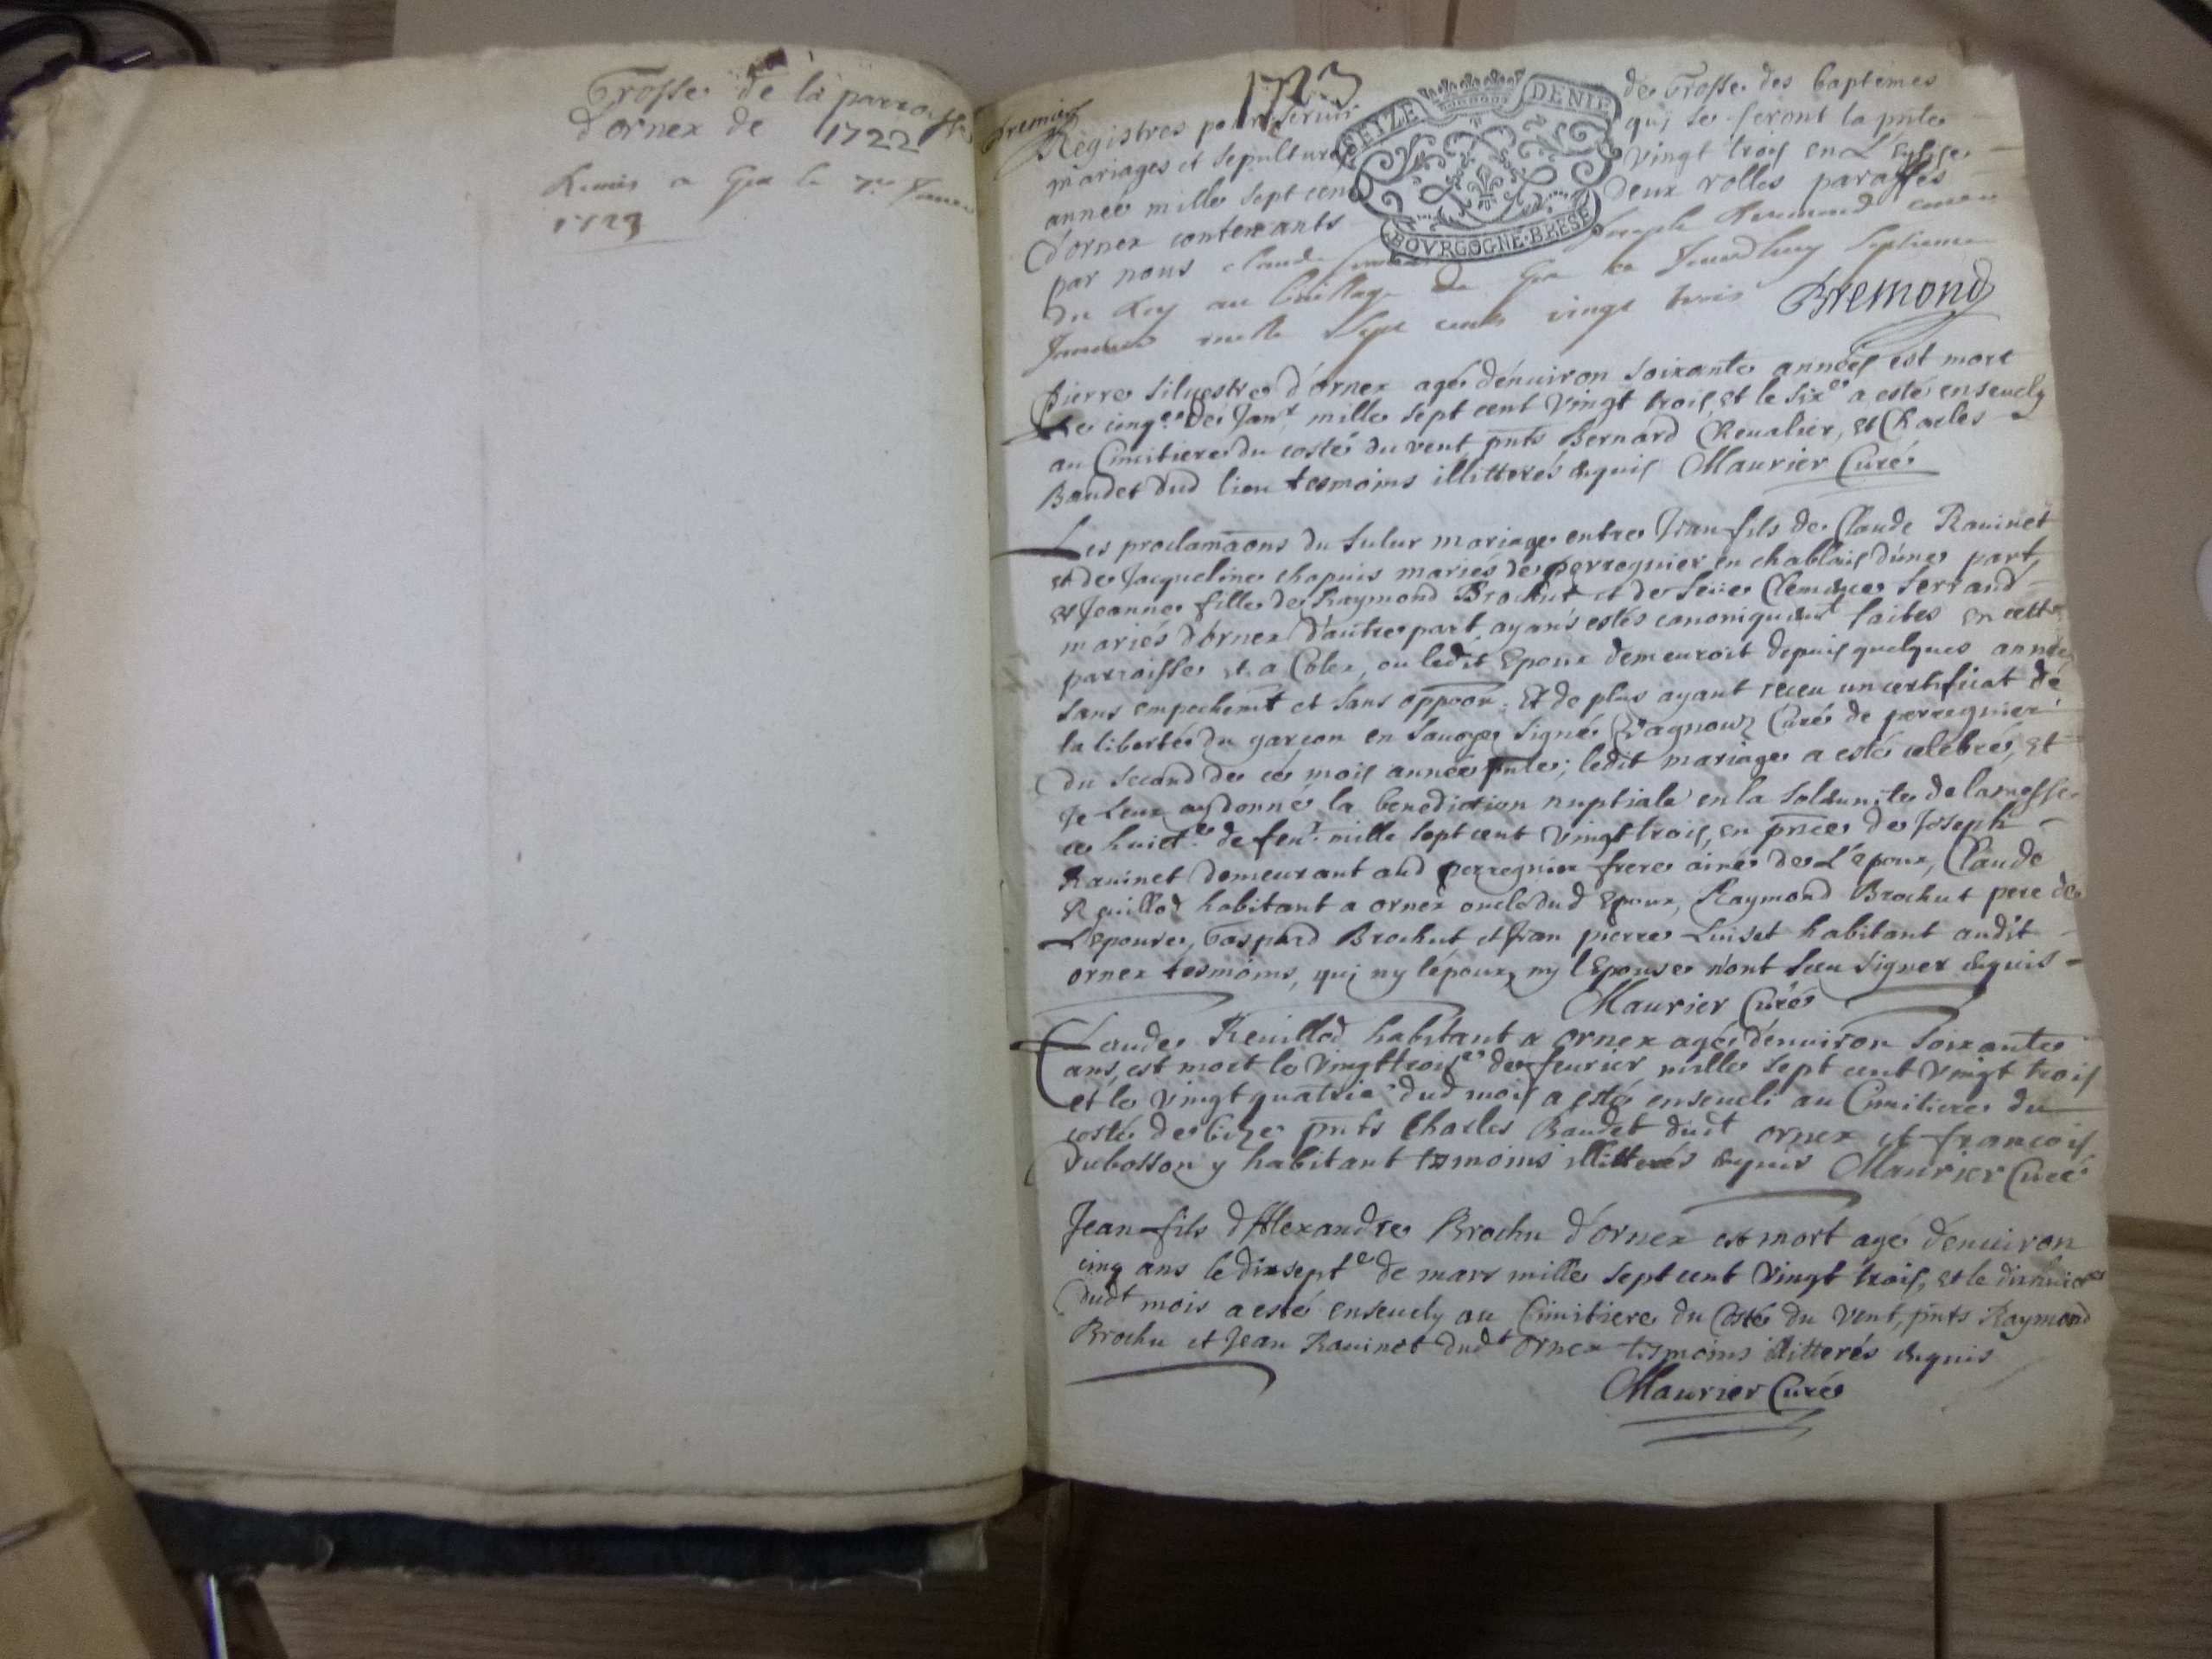 Grosse de la parroisse
d'ornex de 1722
Remis a Gex le 7e Janer
1723
1723
premier
Registres pour servir de Grosse des baptemes
mariages et sepultures qui se feront la pnte
année mille sept cent vingt trois en L'Eglise
d'ornex contenants deux rolles paraffés
par nous claude Joseph Bremond
du Roy au bailliage de Gex ce Jourdhuy septieme
Janvier mille sept cents vingt trois Bremond
SEIZE DENIE
BOVRGOGNE·BRESE
Pierre Siluestre d'ornex agé d'enuiron soixante années est mort
Le cinqe de Janr mille sept cent vingt trois, et le sixe a esté enseuely
au Cimitiere du costé du vent, pnts Bernard Cheualier, et Charles
Baudet dud lieu tesmoins illitterés enquis Maurier Curé
Les proclamaons du futur mariage entre Jean fils de Claude Rauinet
et de Jacqueline chapuis mariés de perregnier en chablais d'une part,
et Jeanne fille de Raymond Brochut et de feüe Clemence Serrand
mariés d'ornex d'autre part, ayans estés canoniquemt faites en cette
parroisse et a Colex, ou ledit Epoux demeuroit depuis quelques années
sans empechemt et sans oppoon. Et de plus ayant receu un certificat de
la liberté du garçon en Sauoye signé Curé de perregnier
du second de ce mois année pnte; ledit mariage a esté celebré, et
Je Leur ay donné la benediction nuptiale en la solemnité de la messe
ce huicte de feur mille sept cent vingt trois, en pnce de Joseph
Rauinet demeurant aud perregnier frere ainé de L'epoux, Claude
Reuillod habitant a ornex oncle dud Epoux, Raymond Brochut pere de
L'Epouse, Gaspard Brochut et Jean pierre Luiset habitant audit
ornex tesmoins, qui ny l'époux, ny l'Epouse n'ont sceu signer enquis
Maurier Curé
Claude Reuillod habitant a ornex agé d'enuiron soixante
ans, est mort le vingttroise de feurier mille sept cent vingt trois
et le vingt quatrie dud mois a esté enseueli au Cimitiere du
costé de bize pnts Charles Baudet dudt ornex et françois
Dubosson y habitant tesmoins illitterés enquis Maurier Curé
Jean fils d'Alexandre Brochu d'ornex est mort agé d'enuiron
cinq ans le dixsepte de mars mille sept cent vingt trois, et le dixhuicte
dudt mois a esté enseuely au Cimitiere du Costé du vent, pnts Raymond
Brochu et Jean Rauinet dudt ornex tesmoins illitterés enquis
Maurier Curé